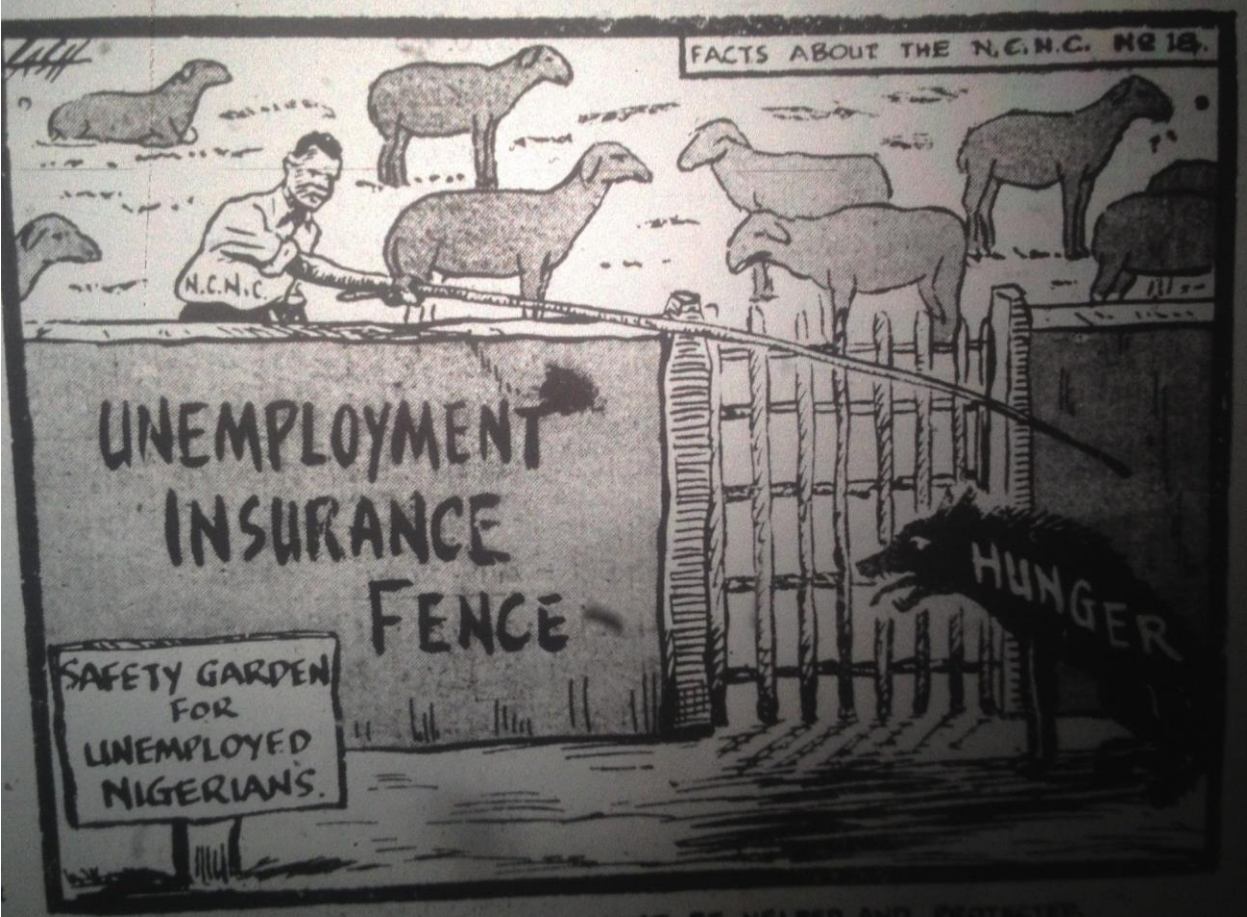 FACTS ABOUT THE N.C.N.C. NO 18.
N.C.N.C.
UNEMPLOYMENT
INSURANCE
FENCE
HUNGER
SAFETY GARDEN
FOR
UNEMPLOYED
NIGERIAN'S.